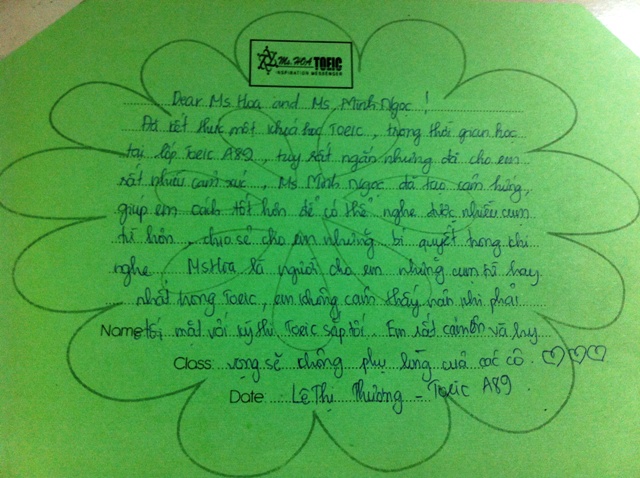 Ms. HOA TOEIC
INSPIRATION MESSENGER
Dear Ms Hoa and Ms Minh Ngọc!
Đã kết thúc một khoá học Toeic, trong thời gian học
tại lớp Toeic A89, tuy rất ngắn nhưng đã cho em
rất nhiều cảm xúc, Ms Minh Ngọc đã tạo cảm hứng,
giúp em cách tốt hơn để có thể nghe được nhiều cụm
từ hơn, chia sẻ cho em những bí quyết trong khi
nghe. Ms Hoa là người cho em những cụm từ hay
nhất trong Toeic, em không cảm thấy nản khi phải
Name đối mặt với kỳ thi Toeic sắp tới. Em rất cảm ơn và hy
Class vọng sẽ không phụ lòng của các cô. ♡♡♡
Date Lê Thị Phương - Toeic A89